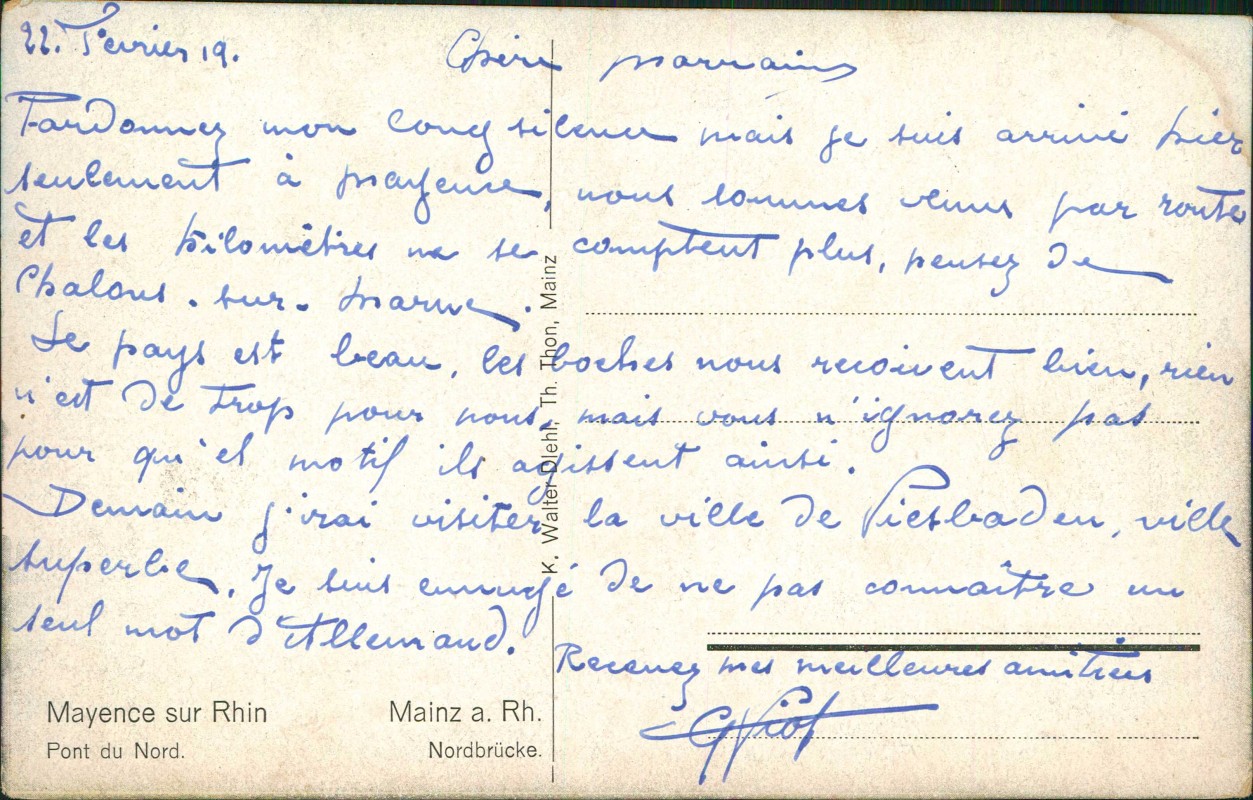 22. Février 19.
Chère marraine
Pardonnez mon long silence mais je suis arrivé hier
seulement à Mayence, nous sommes venus par route
et les kilomètres ne se comptent plus, pensez de
Chalons. sur. Marne.
Le pays est beau, les boches nous recoivent bien, rien
n'est de trop pour nous, mais vous n'ignorez pas
pour qu'el motif ils agissent ainsi.
Demain j'irai visiter la ville de Viesbaden, ville
superbe. Je suis ennuyé de ne pas connaître un
seul mot d'Allemand.
Recevez mes meilleures amitiés
G Viot
K. Walter Diehl, Th. Thon, Mainz
Mayence sur Rhin Mainz a. Rh.
Pont du Nord. Nordbrücke.